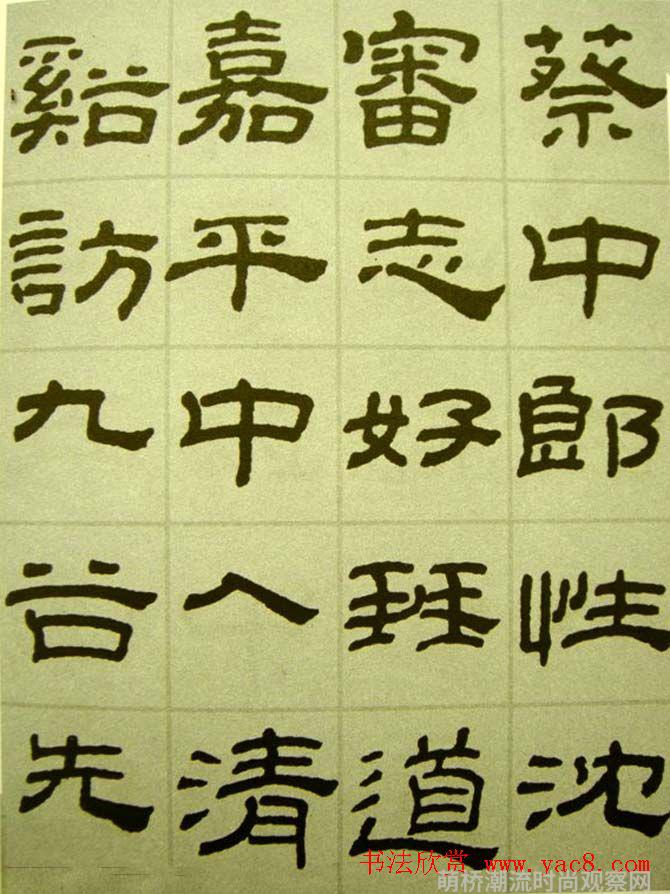 蔡中郎性沈
審志好班道
嘉平中入清
谿訪九谷先
书法欣赏 www.yac8.com
萌桥潮流时尚观察网